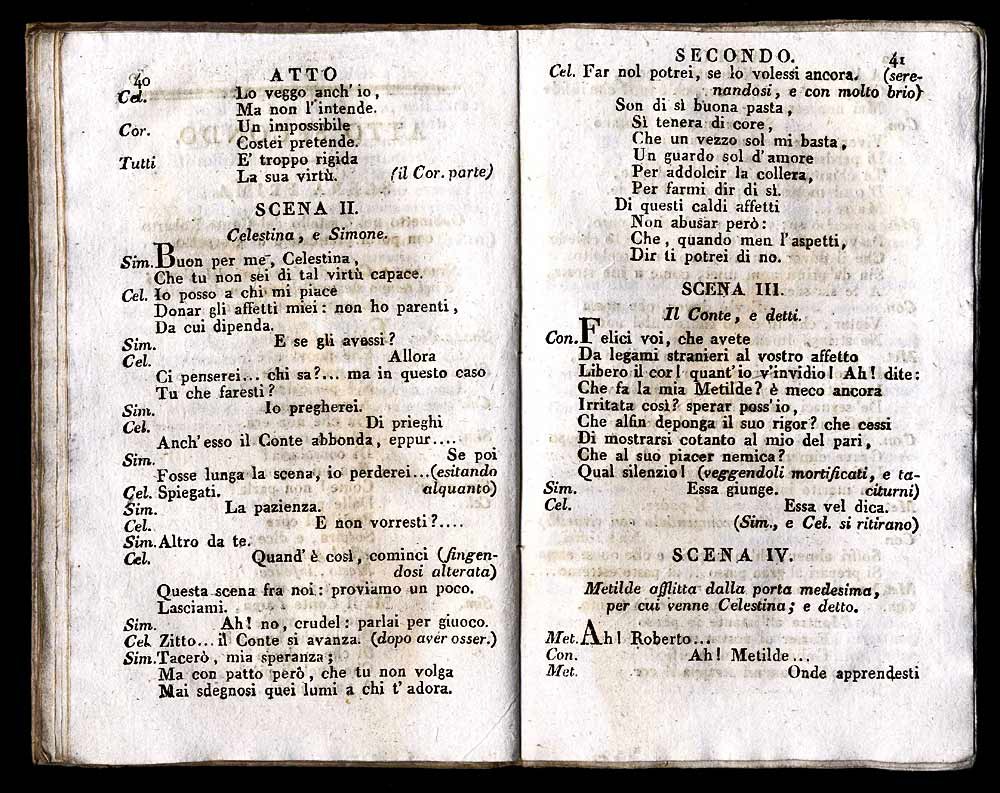 40 ATTO
Cel. Lo veggo anch' io,
Ma non l'intende.
Cor. Un impossibile
Costei pretende.
Tutti E' troppo rigida
La sua virtù. (il Cor. parte)
SCENA II.
Celestina, e Simone.
Sim. Buon per me, Celestina,
Che tu non sei di tal virtù capace.
Cel. Io posso a chi mi piace
Donar gli affetti miei: non ho parenti,
Da cui dipenda.
Sim. E se gli avessi?
Cel. Allora
Ci penserei... chi sa?... ma in questo caso
Tu che faresti?
Sim. Io pregherei.
Cel. Di prieghi
Anch'esso il Conte abbonda, eppur....
Sim. Se poi
Fosse lunga la scena, io perderei...(esitando
Cel. Spiegati. alquanto)
Sim. La pazienza.
Cel. E non vorresti?....
Sim. Altro da te.
Cel. Quand'è così, cominci (fingen-
dosi alterata)
Questa scena fra noi: proviamo un poco.
Lasciami.
Sim. Ah! no, crudel: parlai per giuoco.
Cel. Zitto... il Conte si avanza. (dopo aver osser.)
Sim. Tacerò, mia speranza;
Ma con patto però, che tu non volga
Mai sdegnosi quei lumi a chi t'adora.
SECONDO. 41
Cel. Far nol potrei, se lo volessi ancora. (sere-
nandosi, e con molto brio)
Son di sì buona pasta,
Sì tenera di core,
Che un vezzo sol mi basta,
Un guardo sol d'amore
Per addolcir la collera,
Per farmi dir di sì.
Di questi caldi affetti
Non abusar però:
Che, quando men l'aspetti,
Dir ti potrei di no.
SCENA III.
Il Conte, e detti.
Con. Felici voi, che avete
Da legami stranieri al vostro affetto
Libero il cor! quant'io v'invidio! Ah! dite:
Che fa la mia Metilde? è meco ancora
Irritata così? sperar poss'io,
Che alfin deponga il suo rigor? che cessi
Di mostrarsi cotanto al mio del pari,
Che al suo piacer nemica?
Qual silenzio! (veggendoli mortificati, e ta-
Sim. Essa giunge. citurni)
Cel. Essa vel dica.
(Sim., e Cel. si ritirano)
SCENA IV.
Metilde afflitta dalla porta medesima,
per cui venne Celestina; e detto.
Met. Ah! Roberto...
Con. Ah! Metilde...
Met. Onde apprendesti